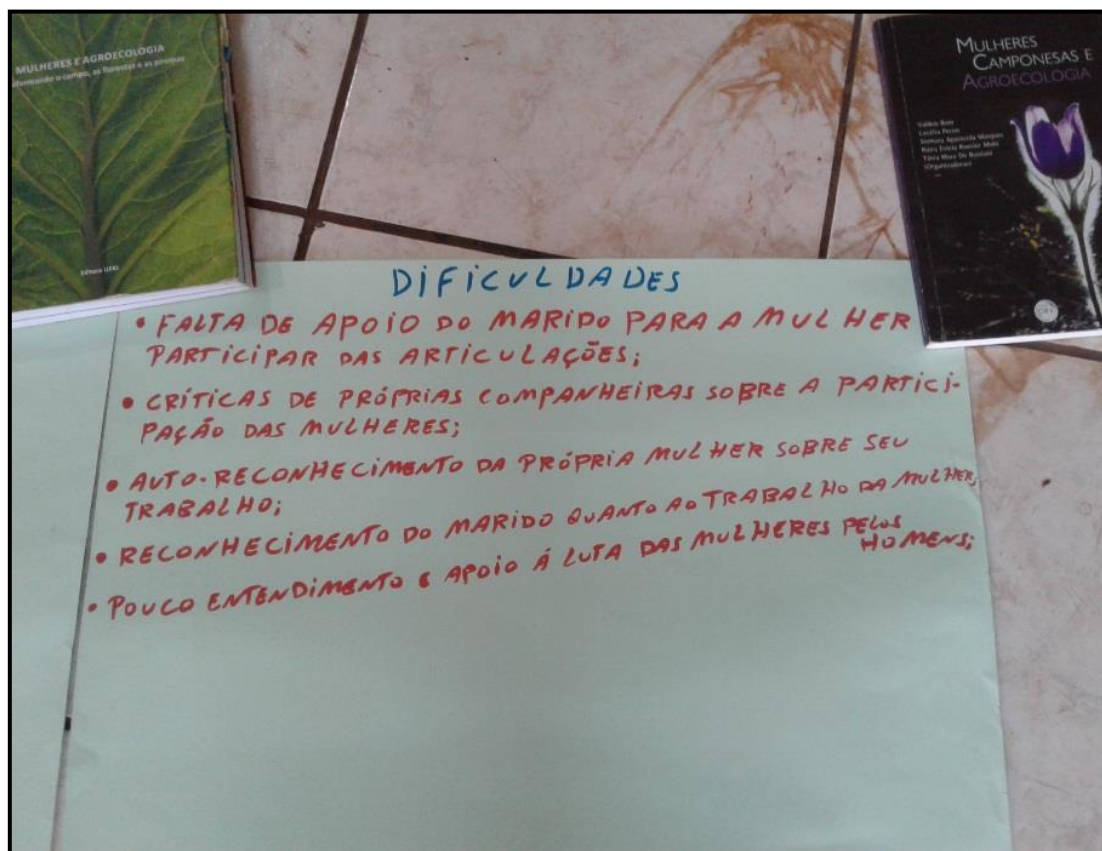 MULHERES E AGROECOLOGIA
o campo, as florestas e as pessoas
Editora UFRJ
MULHERES
CAMPONESAS E
AGROECOLOGIA
(Organizadoras)
DIFICULDADES
• FALTA DE APOIO DO MARIDO PARA A MULHER
PARTICIPAR DAS ARTICULAÇÕES;
• CRÍTICAS DE PRÓPRIAS COMPANHEIRAS SOBRE A PARTICI-
PAÇÃO DAS MULHERES;
• AUTO-RECONHECIMENTO DA PRÓPRIA MULHER SOBRE SEU
TRABALHO;
• RECONHECIMENTO DO MARIDO QUANTO AO TRABALHO DA MULHER;
• POUCO ENTENDIMENTO E APOIO Á LUTA DAS MULHERES PELOS
HOMENS;